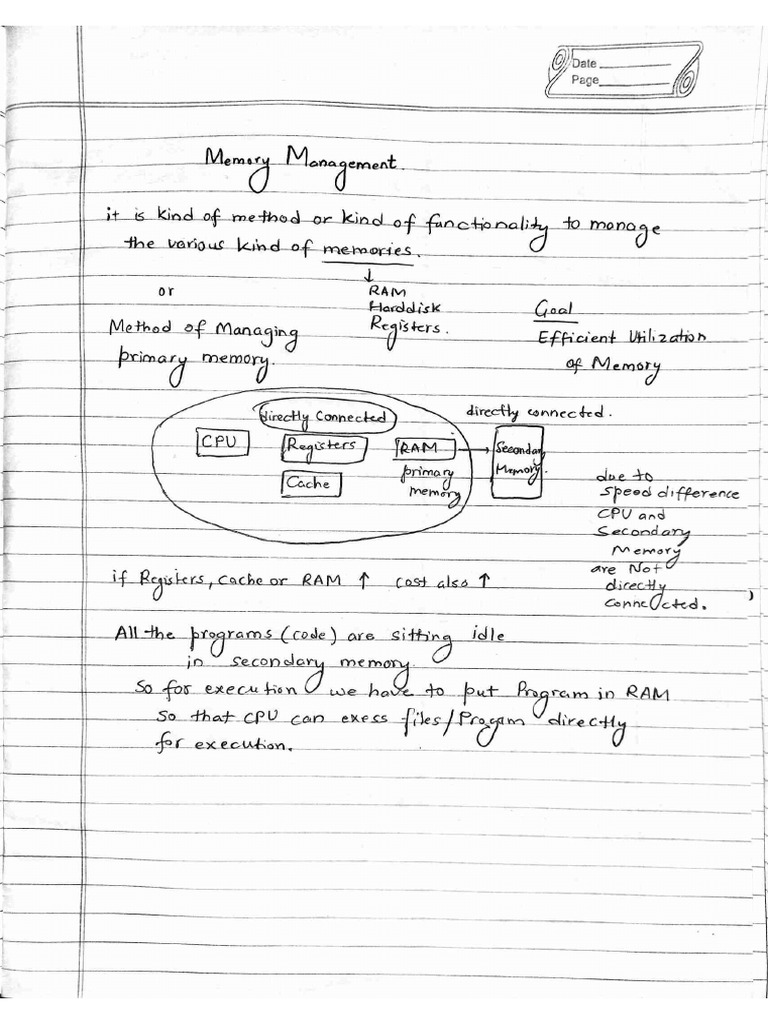 Date
Page
Memory Management.
it is kind of method or kind of functionality to manage
the various kind of memories.
↓
or
RAM
Harddisk
Registers.
Method of Managing
primary memory.
Goal
Efficient Utilization
of Memory
directly Connected
directly connected.
CPU
Registers
RAM
Secondary
Memory.
Cache
primary
memory
due to
speed difference
CPU and
Secondary
Memory
are Not
directly
connected.
if Registers, cache or RAM ↑ cost also ↑
All the programs (code) are sitting idle
in secondary memory.
So for execution we have to put Program in RAM
so that CPU can exess files/Progam directly
for execution.